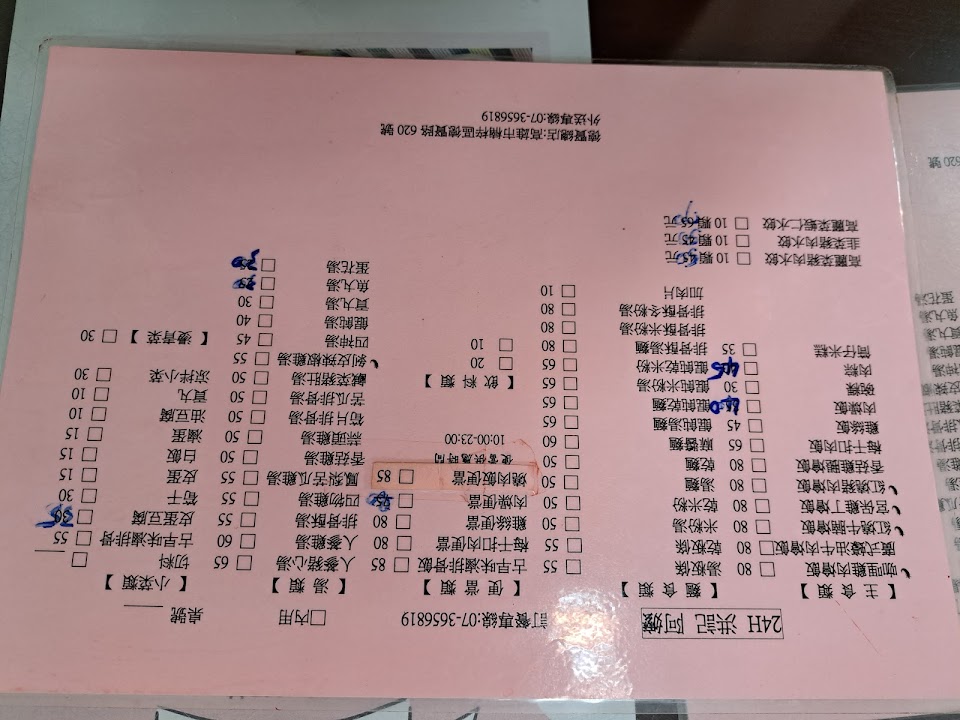 24H 洪記 阿嬤 訂餐專線:07-3656819 □內用 桌號
【 主 食 類 】
咖哩雞肉燴飯 □ 80
廣式蠔油牛肉燴飯 □ 80
紅燒牛腩燴飯 □ 80
宮保雞丁燴飯 □ 80
紅燒豬肉燴飯 □ 80
香菇雞腿燴飯 □ 80
梅干扣肉飯 □ 65
雞絲飯 □ 45
肉燥飯 □ 40
碗粿 □ 30
肉粽 □ 45
筒仔米糕 □ 35
高麗菜豬肉水餃 □ 10 顆 45 元
韭菜豬肉水餃 □ 10 顆 45 元
高麗菜蝦仁水餃 □ 10 顆 65 元
【 麵 食 類 】
湯板條 □ 55
乾板條 □ 55
米粉湯 □ 50
乾米粉 □ 50
湯麵 □ 50
乾麵 □ 50
麻醬麵 □ 60
餛飩湯麵 □ 65
餛飩乾麵 □ 65
餛飩米粉湯 □ 65
餛飩乾米粉 □ 65
排骨酥湯麵 □ 80
排骨酥米粉湯 □ 80
排骨酥冬粉湯 □ 80
加肉片 □ 10
【 便 當 類 】
古早味滷排骨 □ 85
梅干扣肉便當 □ 80
雞絲便當 □ 80
肉燥便當 □
燒肉飯便當 □ 85
便當供應時間
10:00-23:00
【 飲 料 類 】
□ 20
□ 10
【 湯 類 】
人參豬心湯 □ 65
人參雞湯 □ 60
排骨酥湯 □ 55
四物雞湯 □ 55
鳳梨苦瓜雞湯 □ 55
香菇雞湯 □ 50
蒜頭雞湯 □ 50
筍片排骨湯 □ 50
苦瓜排骨湯 □ 50
鹹菜豬肚湯 □ 50
剝皮辣椒雞湯 □ 55
四神湯 □ 45
餛飩湯 □ 40
貢丸湯 □ 30
魚丸湯 □
蛋花湯 □ 30
【 小 菜 類 】
切料 □
古早味滷排骨 □ 55
皮蛋豆腐 □ 35
筍干 □ 30
皮蛋 □ 15
白飯 □ 15
滷蛋 □ 15
油豆腐 □ 10
貢丸 □ 10
涼拌小菜 □ 30
【 燙青菜 】 □ 30
德賢總店:高雄市楠梓區德賢路 620 號
外送專線:07-3656819